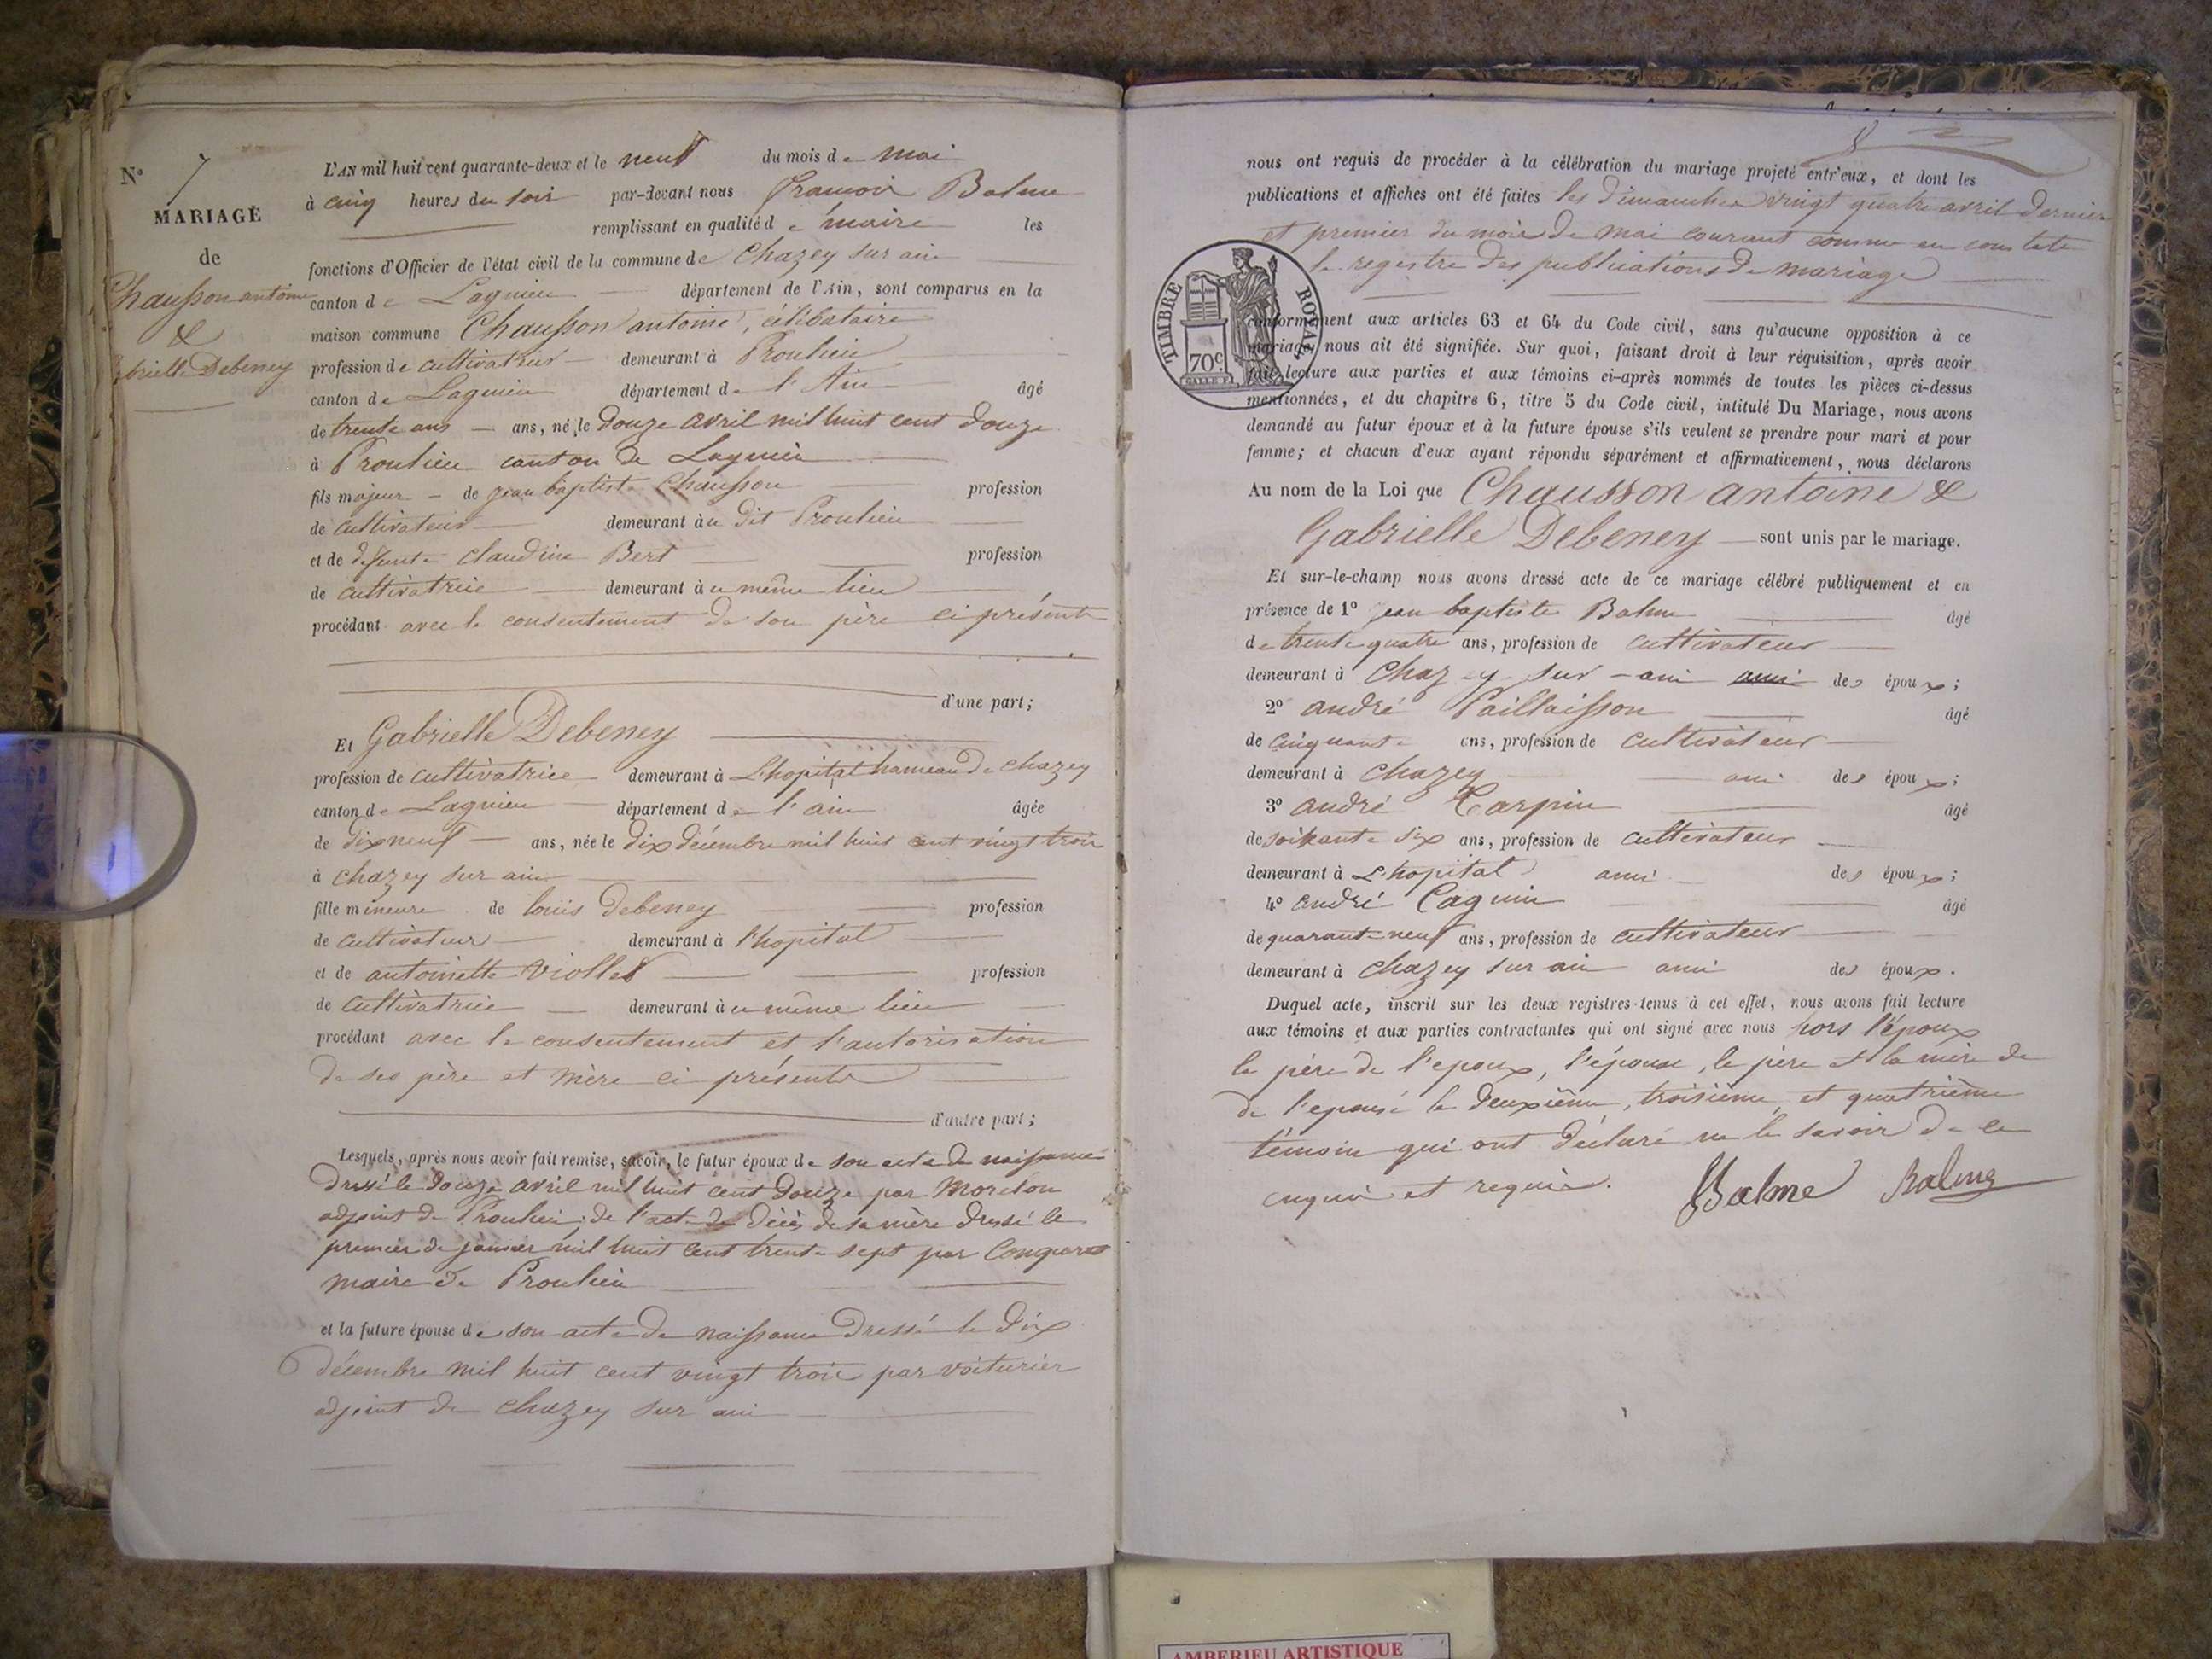 N° 7
MARIAGE
de
Chausson antoine
&
Gabrielle Debeney
L'AN mil huit cent quarante-deux et le neuf du mois de mai
à cinq heures du soir par-devant nous françois Balme
remplissant en qualité de maire les
fonctions d'Officier de l'état civil de la commune de Chazey sur ain
canton de Lagnieu département de l'Ain, sont comparus en la
maison commune Chausson antoine, célibataire
profession de cultivateur demeurant à Proulieu
canton de Lagnieu département de l'Ain âgé
de trente ans ans, né le douze avril mil huit cent douze
à Proulieu canton de Lagnieu
fils majeur de jean baptiste Chausson profession
de cultivateur demeurant au dit Proulieu
et de defunte claudine Bert profession
de cultivatrice demeurant au même lieu
procédant avec le consentement de son père ci présent
d'une part;
Et Gabrielle Debeney
profession de cultivatrice demeurant à L'hopital hameau de Chazey
canton de Lagnieu département de l'ain âgée
de dix neuf ans, née le dix décembre mil huit cent vingt trois
à chazey sur ain
fille mineure de louis Debeney profession
de cultivateur demeurant à l'hopital
et de antoinette Viollet profession
de cultivatrice demeurant au même lieu
procédant avec le consentement et l'autorisation
de ses père et mère ci présents
d'autre part;
Lesquels, après nous avoir fait remise, savoir, le futur époux de son acte de naissance
dressé le douze avril mil huit cent douze par Moreton
adjoint de Proulieu; de l'acte de décès de sa mère dressé le
premier de janvier mil huit cent trente sept par
maire de Proulieu
et la future épouse de son acte de naissance dressé le dix
décembre mil huit cent vingt trois par voiturier
adjoint de chazey sur ain
8
nous ont requis de procéder à la célébration du mariage projeté entr'eux, et dont les
publications et affiches ont été faites les dimanches vingt quatre avril dernier
et premier du mois de mai courant comme en constate
le registre des publications de mariage
TIMBRE ROYAL
70c
conformément aux articles 63 et 64 du Code civil, sans qu'aucune opposition à ce
mariage nous ait été signifiée. Sur quoi, faisant droit à leur réquisition, après avoir
fait lecture aux parties et aux témoins ci-après nommés de toutes les pièces ci-dessus
mentionnées, et du chapitre 6, titre 5 du Code civil, intitulé Du Mariage, nous avons
demandé au futur époux et à la future épouse s'ils veulent se prendre pour mari et pour
femme; et chacun d'eux ayant répondu séparément et affirmativement, nous déclarons
Au nom de la Loi que Chausson antoine &
Gabrielle Debeney sont unis par le mariage.
Et sur-le-champ nous avons dressé acte de ce mariage célébré publiquement et en
présence de 1° jean baptiste Balme âgé
de trente quatre ans, profession de cultivateur
demeurant à Chazey sur ain ami des époux;
2° andré Paillaisson âgé
de cinquante ans, profession de cultivateur
demeurant à chazey ami des époux;
3° andré Carpin âgé
de soixante six ans, profession de cultivateur
demeurant à L'hopital ami des époux;
4° andré Caguin âgé
de quarante neuf ans, profession de cultivateur
demeurant à chazey sur ain ami des époux.
Duquel acte, inscrit sur les deux registres tenus à cet effet, nous avons fait lecture
aux témoins et aux parties contractantes qui ont signé avec nous hors l'époux
le père de l'epoux, l'épouse, le père et la mère de
de l'epouse le deuxième, troisième, et quatrième
témoin qui ont déclaré ne le savoir de ce
enquis et requis. Balme Balme
AMBERIEU ARTISTIQUE